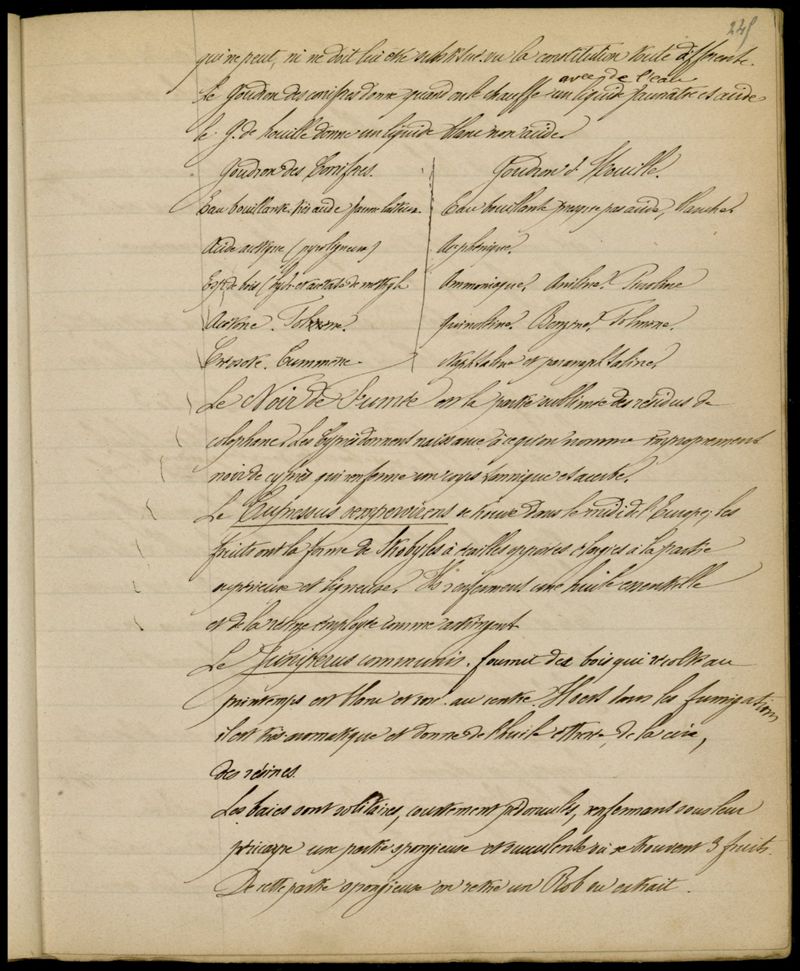 245
qui ne peut, ni ne doit lui être substitué vu la constitution toute différente.
Le Goudron des conifères donne quand on le chauffe avec de l'eau un liquide jaunâtre et acide
le G. de houille donne un liquide blanc non acide.
Goudron des Conifères. Goudron d. Houille.
Eau bouillante très acide jaune laiteux. Eau bouillante presque pas acide, blanche.
Acide acétique (pyroligneux) Ac. phénique.
Esp. de bois (hydr. et acétate de méthyle Ammoniaque. Aniline. Picoline
Acétone. Toluène. Quinoléine. Benzine. Toluène.
Créosote. Cummène. Naphtaline et paranaphtaline.
Le Noir de Fumée est la partie sublimée des résidus de
colophane. Les Cyprès donnent naissance à ce qu'on nomme improprement
noix de cyprès qui renferme un corps tannique et acerbe.
Le Cupressus sempervirens se trouve dans le midi de l'Europe; les
fruits ont la forme de Strobyles à écailles opposées élargies à la partie
supérieure et ligneuse. Ils renferment une huile essentielle
et de la résine employée comme astringent
Le Juniperus communis. fournit des bois qui récolté au
printemps est blanc et rose au centre. dans les fumigations
il est très aromatique et donne de l'huile éthérée, de la cire,
des résines.
Les baies sont solitaires, courtement pédonculés, renfermant sous leur
péricarpe une partie spongieuse et succulente où se trouvent 3 fruits.
De cette partie spongieuse on retire un Rob ou extrait.